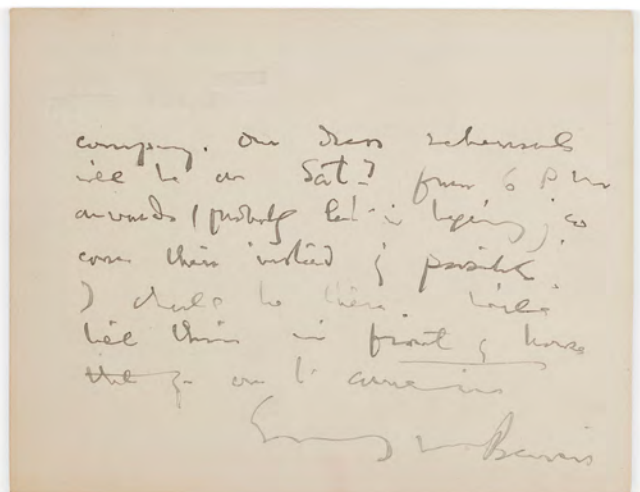 company. Our dress rehearsals
will be on Sat? from 6 P.M.
onwards (probably late in beginning) so
come then instead if possible
I shall be there.
tell them in front of house
the you are to come in